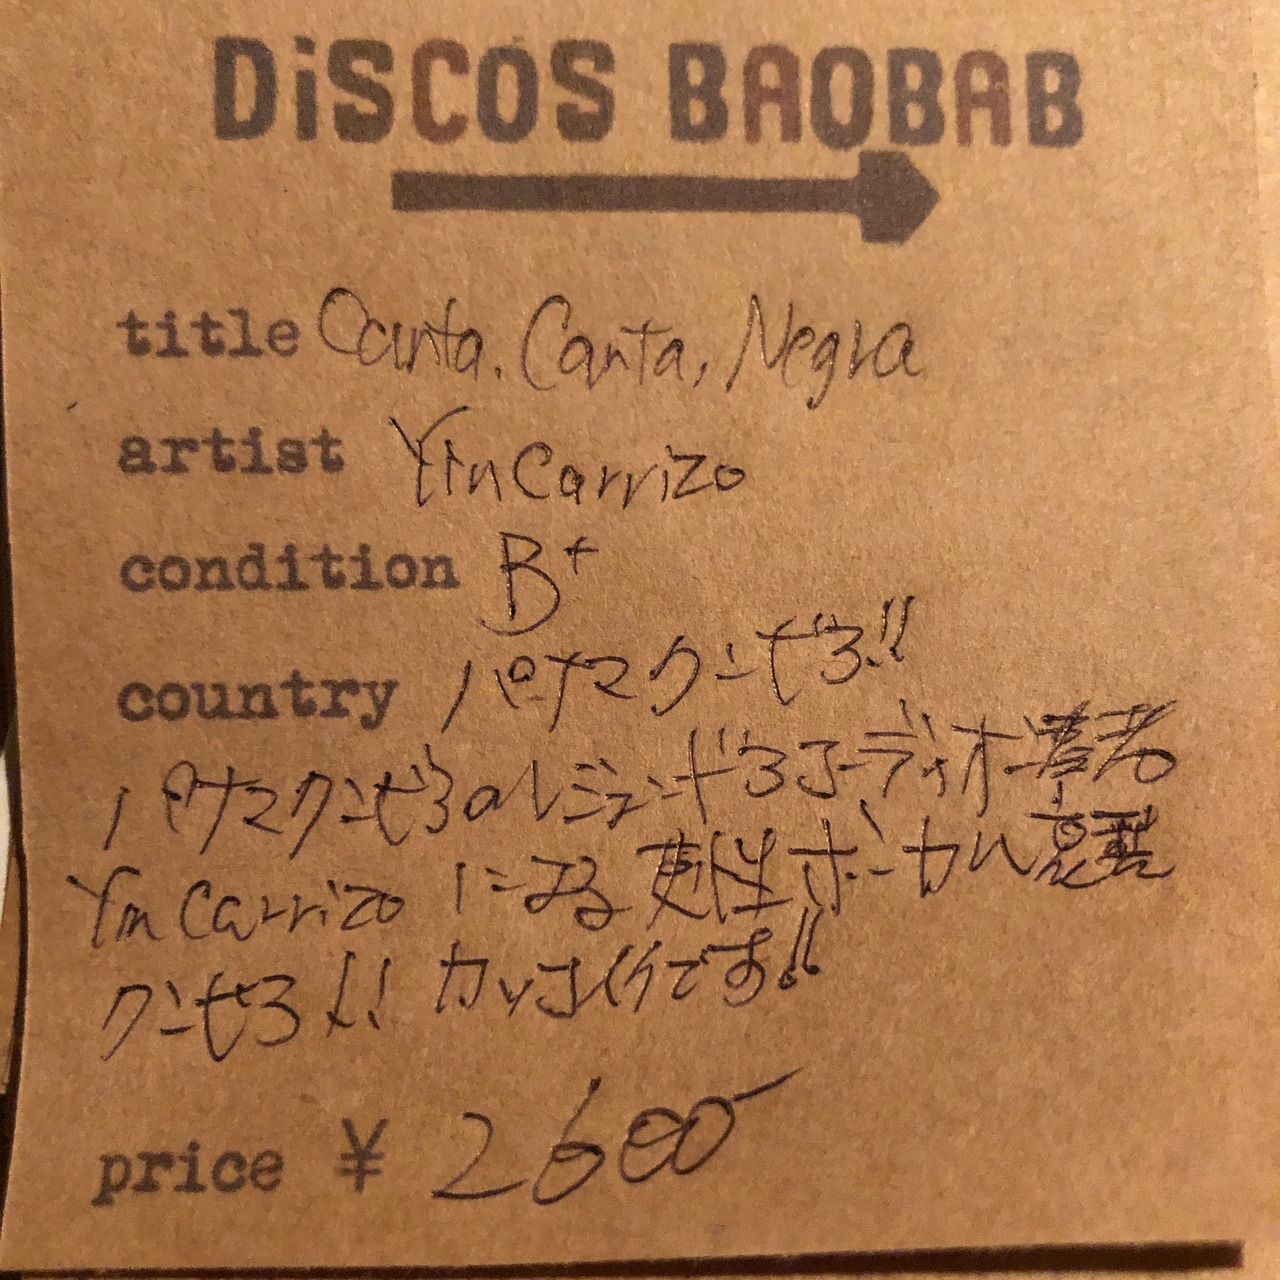 DiSCOS BAOBAB
title Canta, Canta, Negra
artist Yin Carrizo
condition B+
country パナマクンビア!!
パナマクンビアのレジェンドアコーディオン奏者
Yin Carrizo による 女性ボーカル哀愁
クンビア!! カッコイイです!!
price ¥ 2600